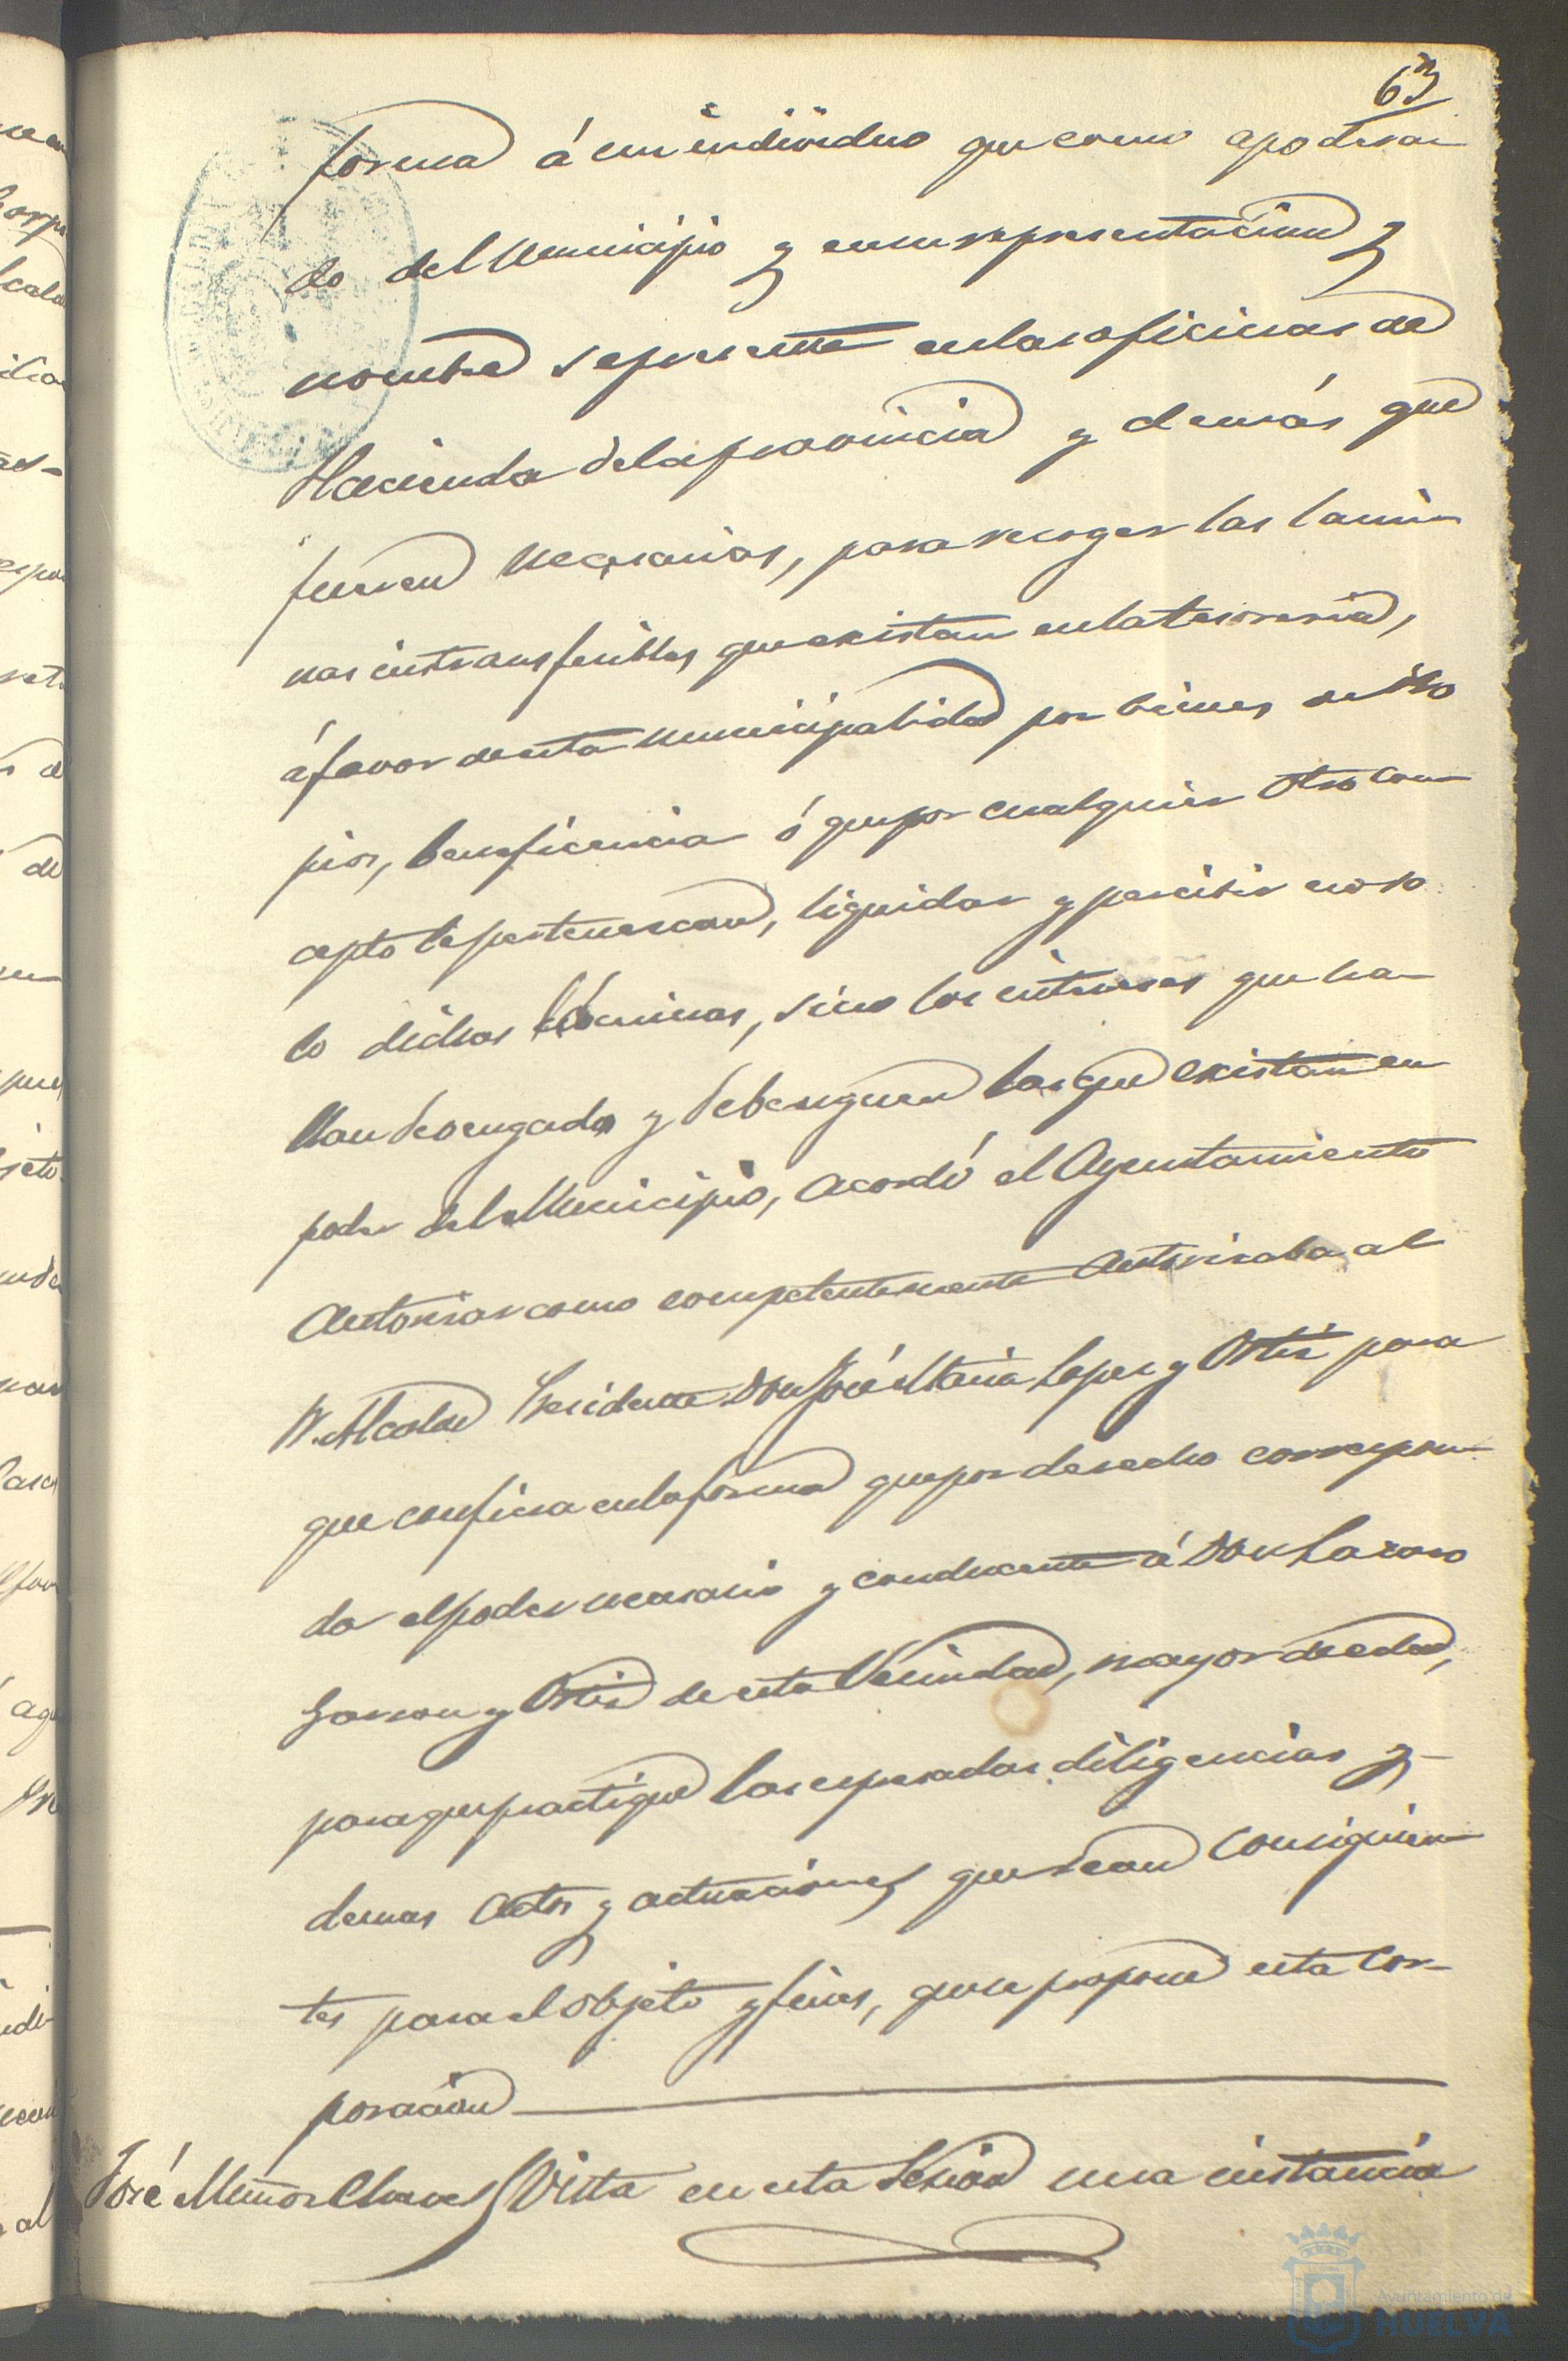 63
forma á un individuo que como apodera-
do del Municipio y en su representacion y
nombre se presente en las oficinas de
Hacienda de la provincia y demás que
fueren necesarias, para recoger las lami-
nas intransferibles que existan en la tesoreria,
á favor de esta municipalidad por bienes de Pro
pios, beneficencia ó que por cualquier otro con-
cepto le pertenescan, liquidar y percibir no so
lo dichas láminas, sino los intereses que ha-
llan devengado y debenguen las que existan en
poder del Municipio, acordó el Ayuntamiento
autorisar como competentemente autorisaba al
Sr. Alcalde Presidente Don José Maria Lopez y Ortiz para
que confiera en la forma que por derecho correspon-
da el poder necesario y conducente á Don Lazaro
Garzon y Ortiz de esta Vecindad, mayor de edad,
para que practique las espresadas diligencias y
demas actos y actuaciones que sean consiguien-
tes para el objeto y fines, que se propone esta Cor-
poracion
José Muñoz Chaves Vista en esta Sesion una instancia
Ayuntamiento de
HUELVA